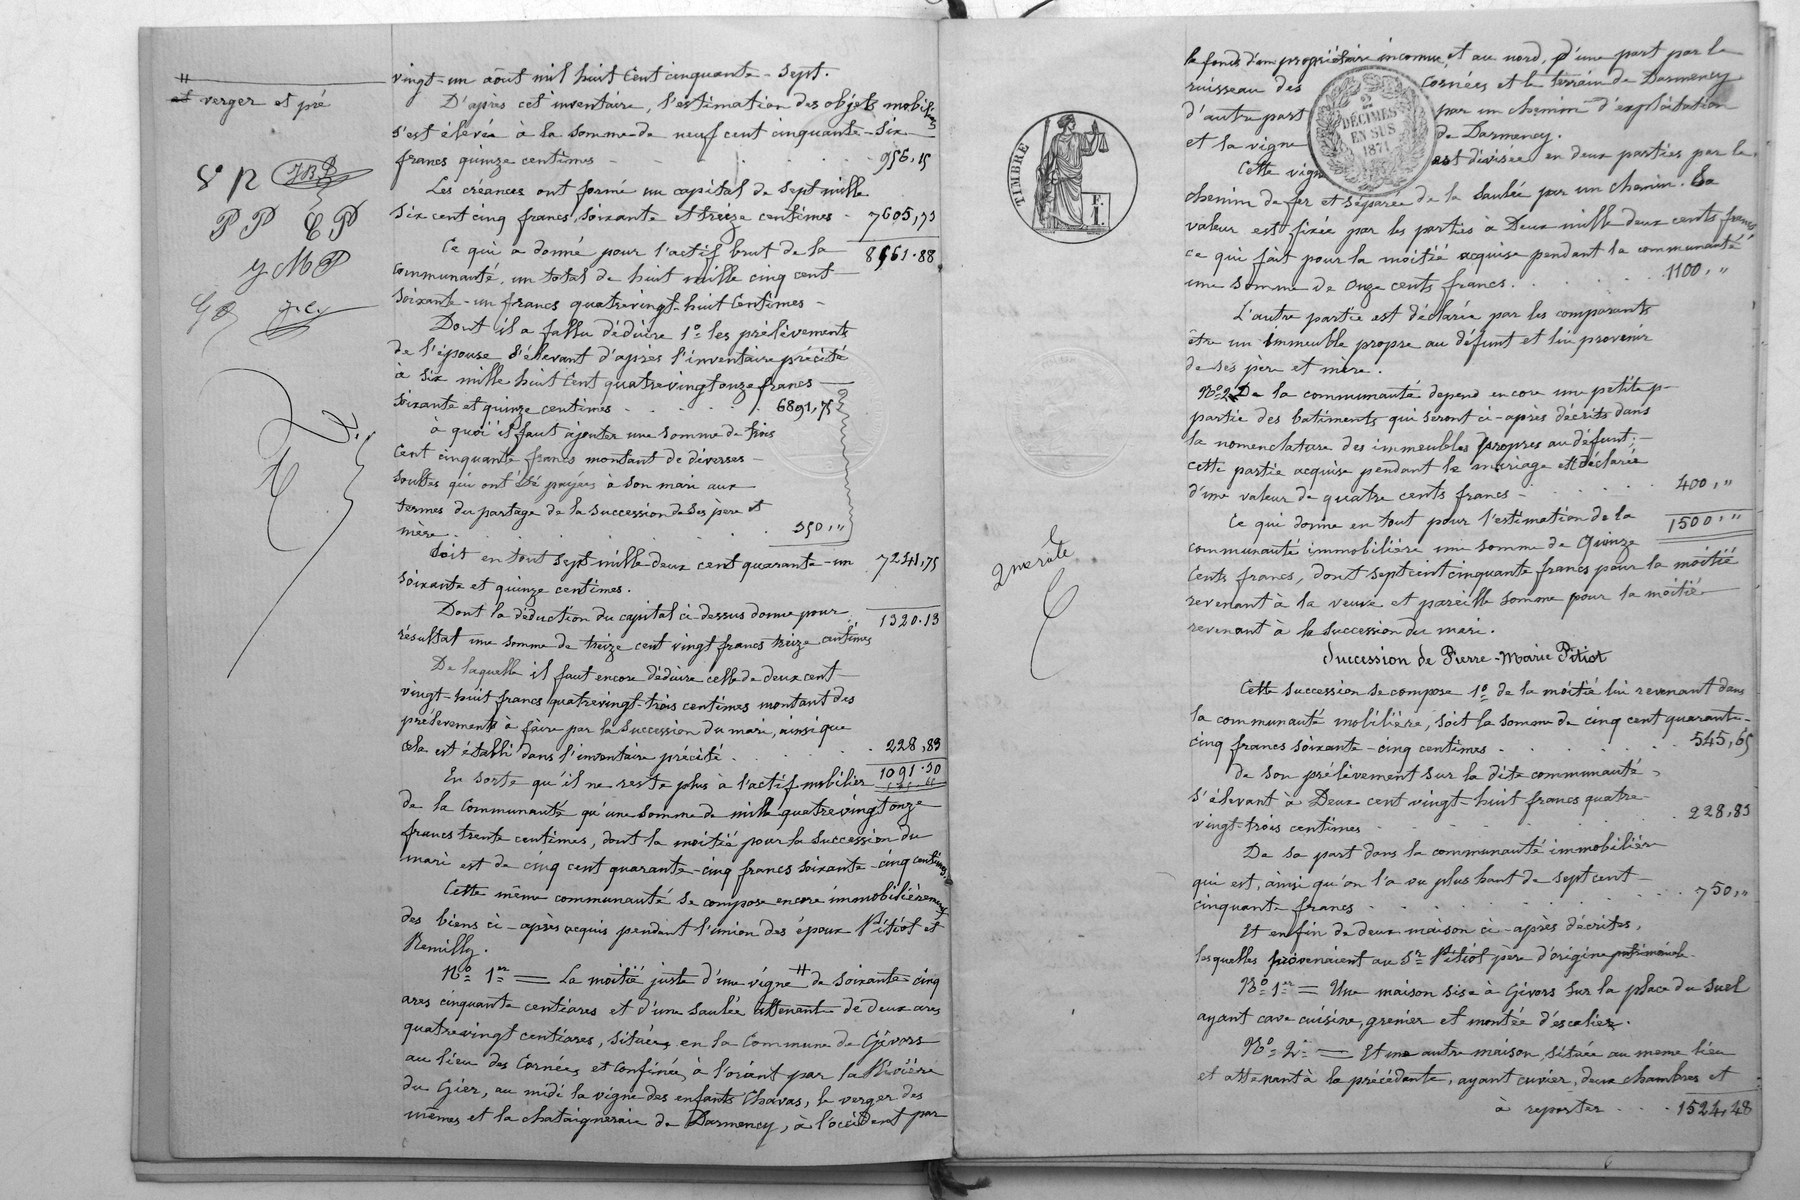 vingt-un août mil huit cent cinquante-sept.
# et verger et pré
D'après cet inventaire, l'estimation des objets mobiliers
s'est élevée à la somme de neuf cent cinquante-six
francs quinze centimes - 956,15
Les créances ont formé un capital de sept mille
six cent cinq francs, soixante et treize centimes - 7605,73
Ce qui a donné pour l'actif brut de la 8561.88
communauté, un total de huit mille cinq cent
soixante-un francs quatrevingt-huit centimes -
Dont il a fallu déduire 1º les prélèvements
de l'épouse s'élevant d'après l'inventaire précité
à six mille huit cent quatrevingt onze francs
soixante et quinze centimes 6891,75
à quoi il faut ajouter une somme de trois
cent cinquante francs montant de diverses
soultes qui ont été payées à son mari aux
termes du partage de la succession de ses père et
mère 350,"
Soit en tout sept mille deux cent quarante-un 7241,75
soixante et quinze centimes.
Dont la déduction du capital ci dessus donne pour 1320.13
résultat une somme de treize cent vingt francs treize centimes
De laquelle il faut encore déduire celle de deux cent
vingt-huit francs quatrevingt-trois centimes montant des
prélevements à faire par la succession du mari, ainsi que
cela est établi dans l'inventaire précité 228,83
En sorte qu'il ne reste plus à l'actif mobilier 1091.30
de la communauté qu'une somme de mille quatrevingt onze
francs trente centimes, dont la moitié pour la succession du
mari est de cinq cent quarante-cinq francs soixante-cinq centimes.
Cette même communauté se compose encore immobilièrement
des biens ci-après acquis pendant l'union des époux Pitiot et
Remilly.
Nº 1er = La moitié juste d'une vigne # de soixante-cinq
ares cinquante centiares et d'une saulée attenante de deux ares
quatrevingt centiares, situées en la commune de Givors
au lieu des Cornées et confinée, à l'orient par la Rivière
du Gier, au midi la vigne des enfants Chavas, le verger des
mêmes et la chataigneraie de Darmency, à l'occident par
P P C P
y M P
le fonds d'un propriétaire inconnu, et au nord, d'une part par le
ruisseau des Cornées et le terrain de Darmency
d'autre part par un chemin d'exploitation
et la vigne de Darmency.
Cette vigne est divisée en deux parties par le
chemin de fer et séparée de la saulée par un chemin. Sa
valeur est fixée par les parties à Deux mille deux cents francs
ce qui fait pour la moitié acquise pendant la communauté
une somme de onze cents francs. 1100,"
L'autre partie est déclarée par les comparants
être un immeuble propre au défunt et lui provenir
de ses père et mère.
Nº 2 De la communauté depend encore une petite
partie des batiments qui seront ci-après décrits dans
la nomenclature des immeubles propres au défunt;
cette partie acquise pendant le mariage est déclarée
d'une valeur de quatre cents francs - 400,"
Ce qui donne en tout pour l'estimation de la 1500,"
communauté immobilière une somme de Quinze
cents francs, dont sept cent cinquante francs pour la moitié
revenant à la veuve et pareille somme pour la moitié
revenant à la succession du mari.
Succession de Pierre-Marie Pitiot
Cette succession se compose 1º de la moitié lui revenant dans
la communauté mobilière, soit la somme de cinq cent quarante-
cinq francs soixante-cinq centimes 545,65
de son prélèvement sur la dite communauté
s'élevant à Deux cent vingt-huit francs quatre-
vingt-trois centimes 228,83
De sa part dans la communauté immobilière
qui est, ainsi qu'on l'a vu plus haut de sept cent
cinquante francs 750,"
Et enfin de deux maison ci-après décrites,
lesquelles provenaient au Sr Pitiot père d'origine patrimoniale.
Nº 1er = Une maison sise à Givors sur la place du Suel
ayant cave cuisine, grenier et montée d'escalier.
Nº 2e = Et une autre maison, située au meme lieu
et attenant à la précédente, ayant cuvier, deux chambres et
à reporter 1524,48
2me rôle
TIMBRE
F. I.
2 DÉCIMES EN SUS 1871